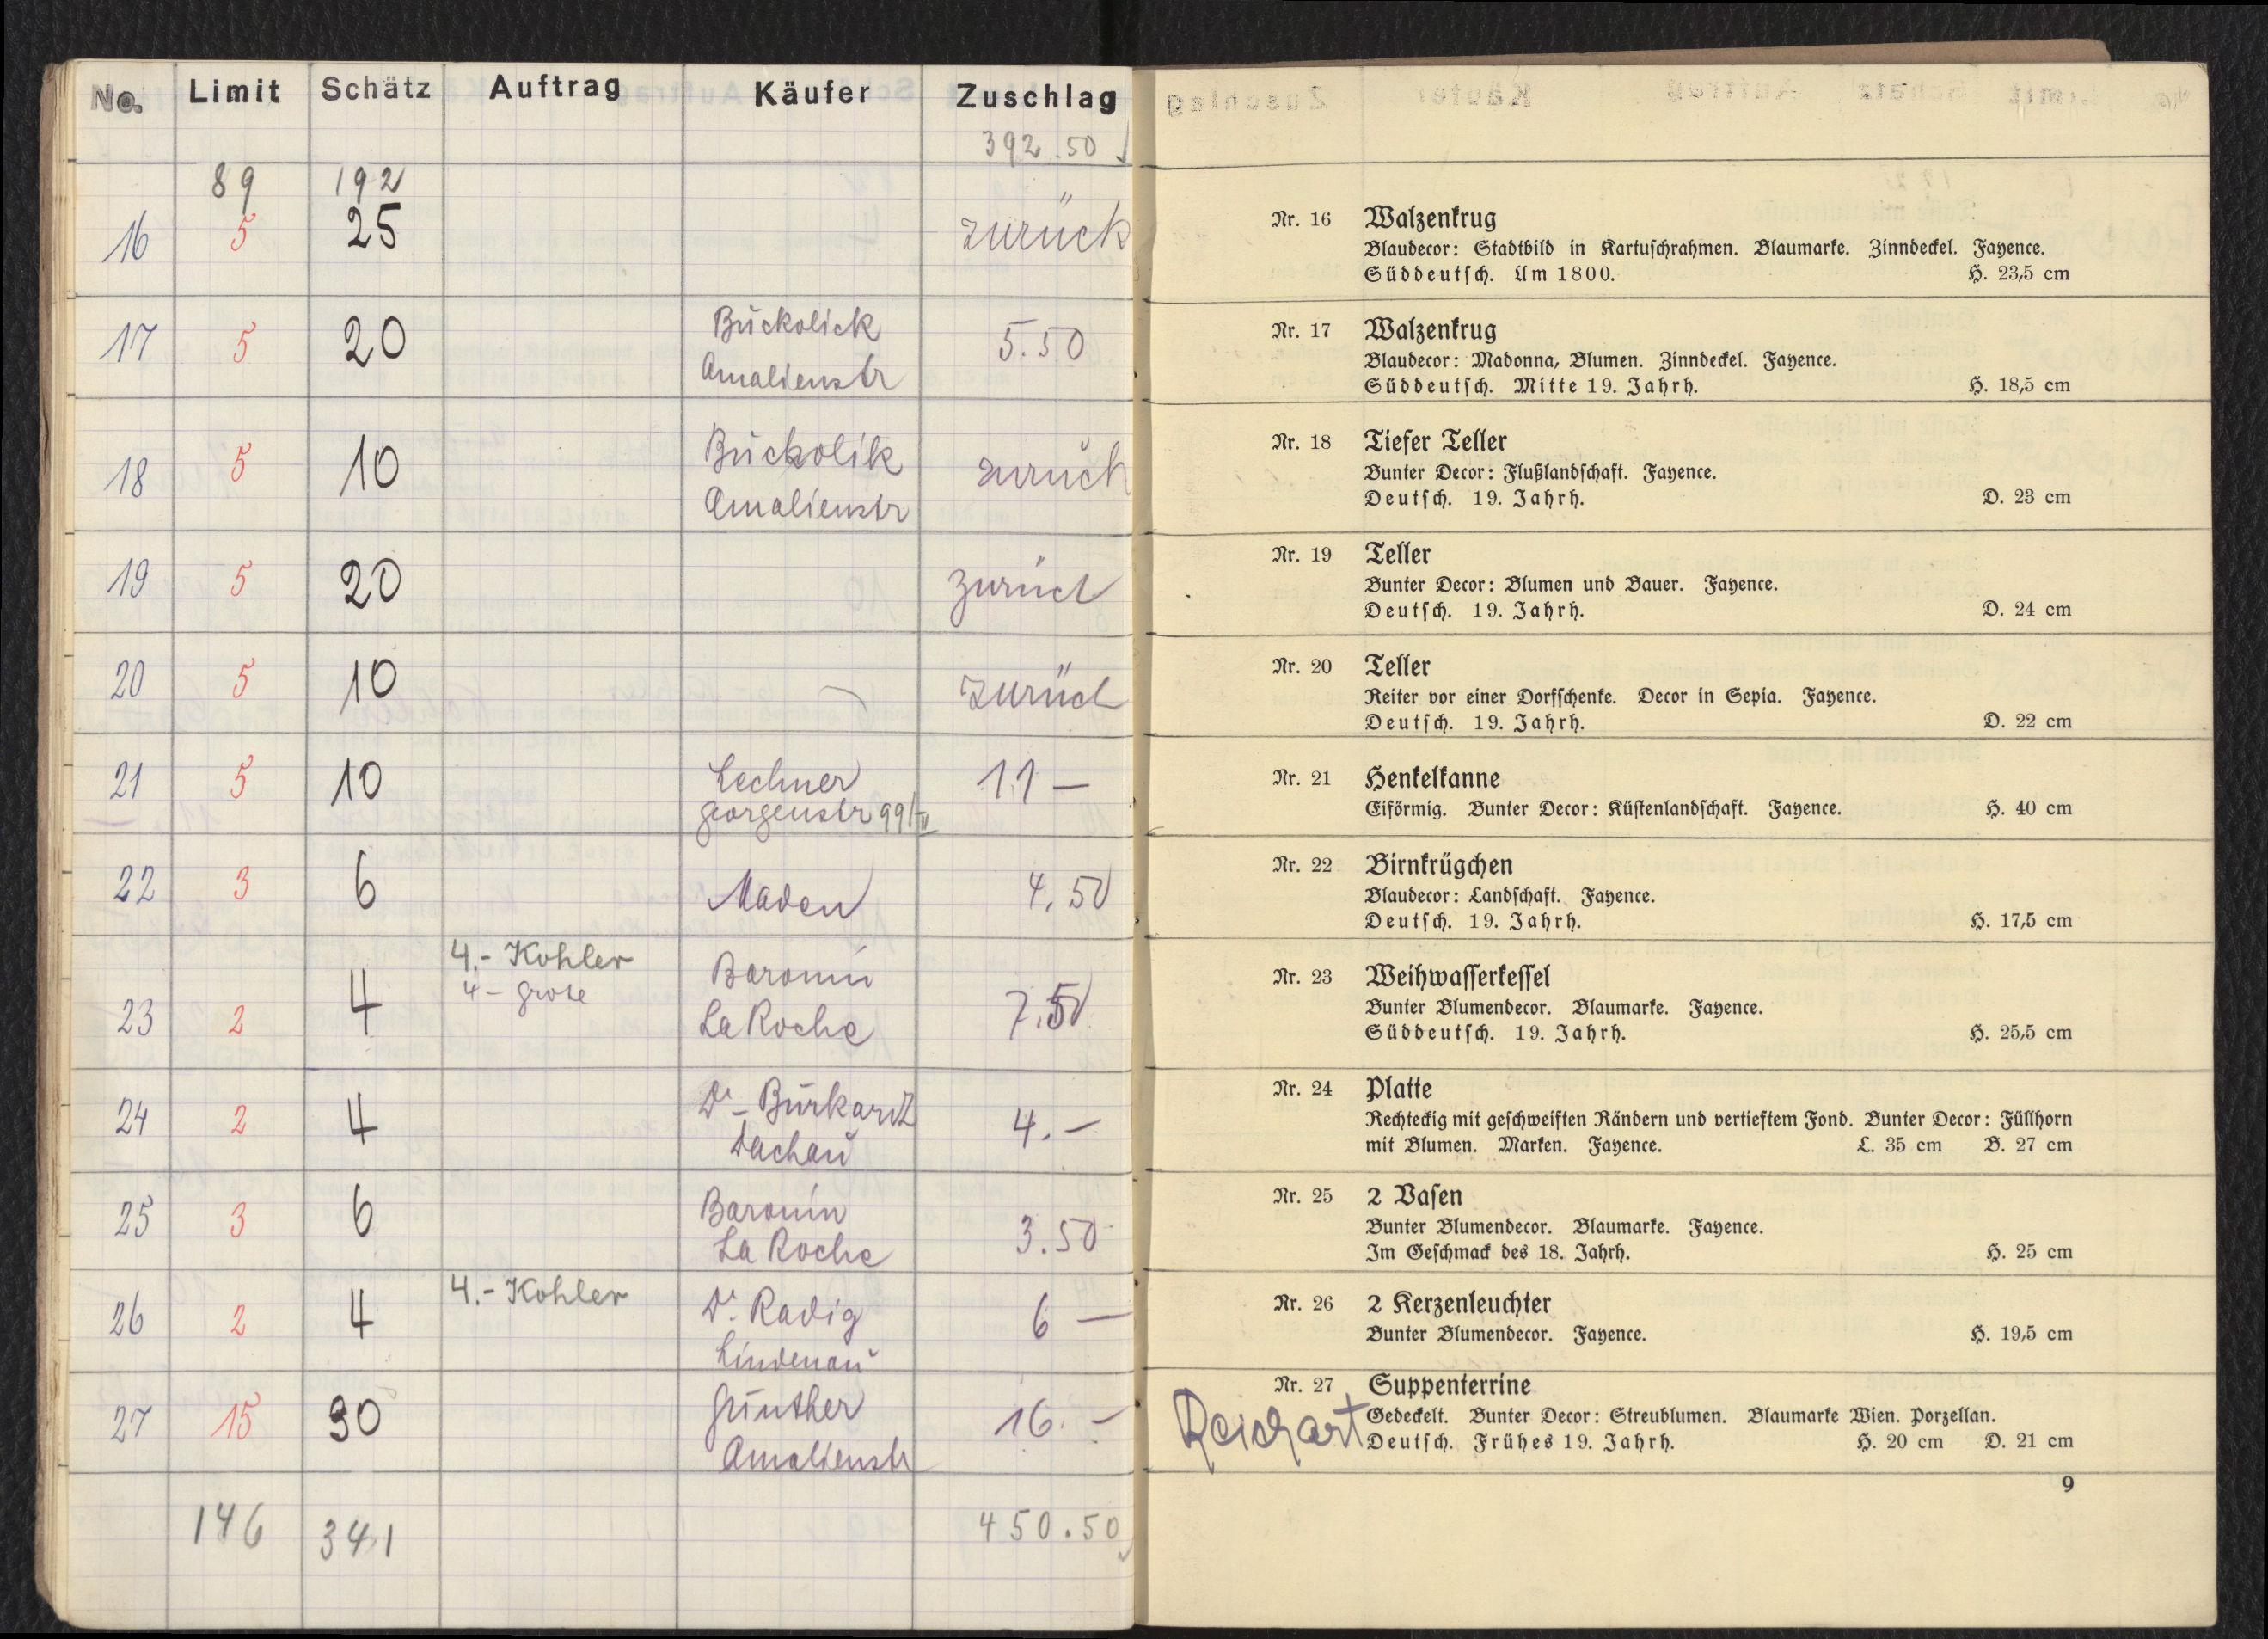 No. Limit Schätz Auftrag Käufer Zuschlag
392.50
89 192
16 5 25 zurück
17 5 20 Buckolick 5.50
Amalienstr
18 5 10 Buckolik zurück
Amalienstr
19 5 20 zurück
20 5 10 zurück
21 5 10 Lechner 11 —
Georgenstr 99/IV
22 3 6 Maden 4.50
4.- Kohler
4 – Grote Baronin
23 2 4 La Roche 7.50
24 2 4 Dr. Burkard 4.—
Dachau
25 3 6 Baronin 3.50
La Roche
26 2 4 4.- Kohler Dr. Radig 6 —
Lindenau
27 15 30 Günther 16.—
Amalienstr
146 341 450.50
Nr. 16 Walzenkrug
Blaudecor: Stadtbild in Kartuschrahmen. Blaumarke. Zinndeckel. Fayence.
Süddeutsch. Um 1800. H. 23,5 cm
Nr. 17 Walzenkrug
Blaudecor: Madonna, Blumen. Zinndeckel. Fayence.
Süddeutsch. Mitte 19. Jahrh. H. 18,5 cm
Nr. 18 Tiefer Teller
Bunter Decor: Flußlandschaft. Fayence.
Deutsch. 19. Jahrh. D. 23 cm
Nr. 19 Teller
Bunter Decor: Blumen und Bauer. Fayence.
Deutsch. 19. Jahrh. D. 24 cm
Nr. 20 Teller
Reiter vor einer Dorfschenke. Decor in Sepia. Fayence.
Deutsch. 19. Jahrh. D. 22 cm
Nr. 21 Henkelkanne
Eiförmig. Bunter Decor: Küstenlandschaft. Fayence. H. 40 cm
Nr. 22 Birnkrügchen
Blaudecor: Landschaft. Fayence.
Deutsch. 19. Jahrh. H. 17,5 cm
Nr. 23 Weihwasserkessel
Bunter Blumendecor. Blaumarke. Fayence.
Süddeutsch. 19. Jahrh. H. 25,5 cm
Nr. 24 Platte
Rechteckig mit geschweiften Rändern und vertieftem Fond. Bunter Decor: Füllhorn
mit Blumen. Marken. Fayence. L. 35 cm B. 27 cm
Nr. 25 2 Vasen
Bunter Blumendecor. Blaumarke. Fayence.
Im Geschmack des 18. Jahrh. H. 25 cm
Nr. 26 2 Kerzenleuchter
Bunter Blumendecor. Fayence. H. 19,5 cm
Nr. 27 Suppenterrine
Reichart Gedeckelt. Bunter Decor: Streublumen. Blaumarke Wien. Porzellan.
Deutsch. Frühes 19. Jahrh. H. 20 cm D. 21 cm
9